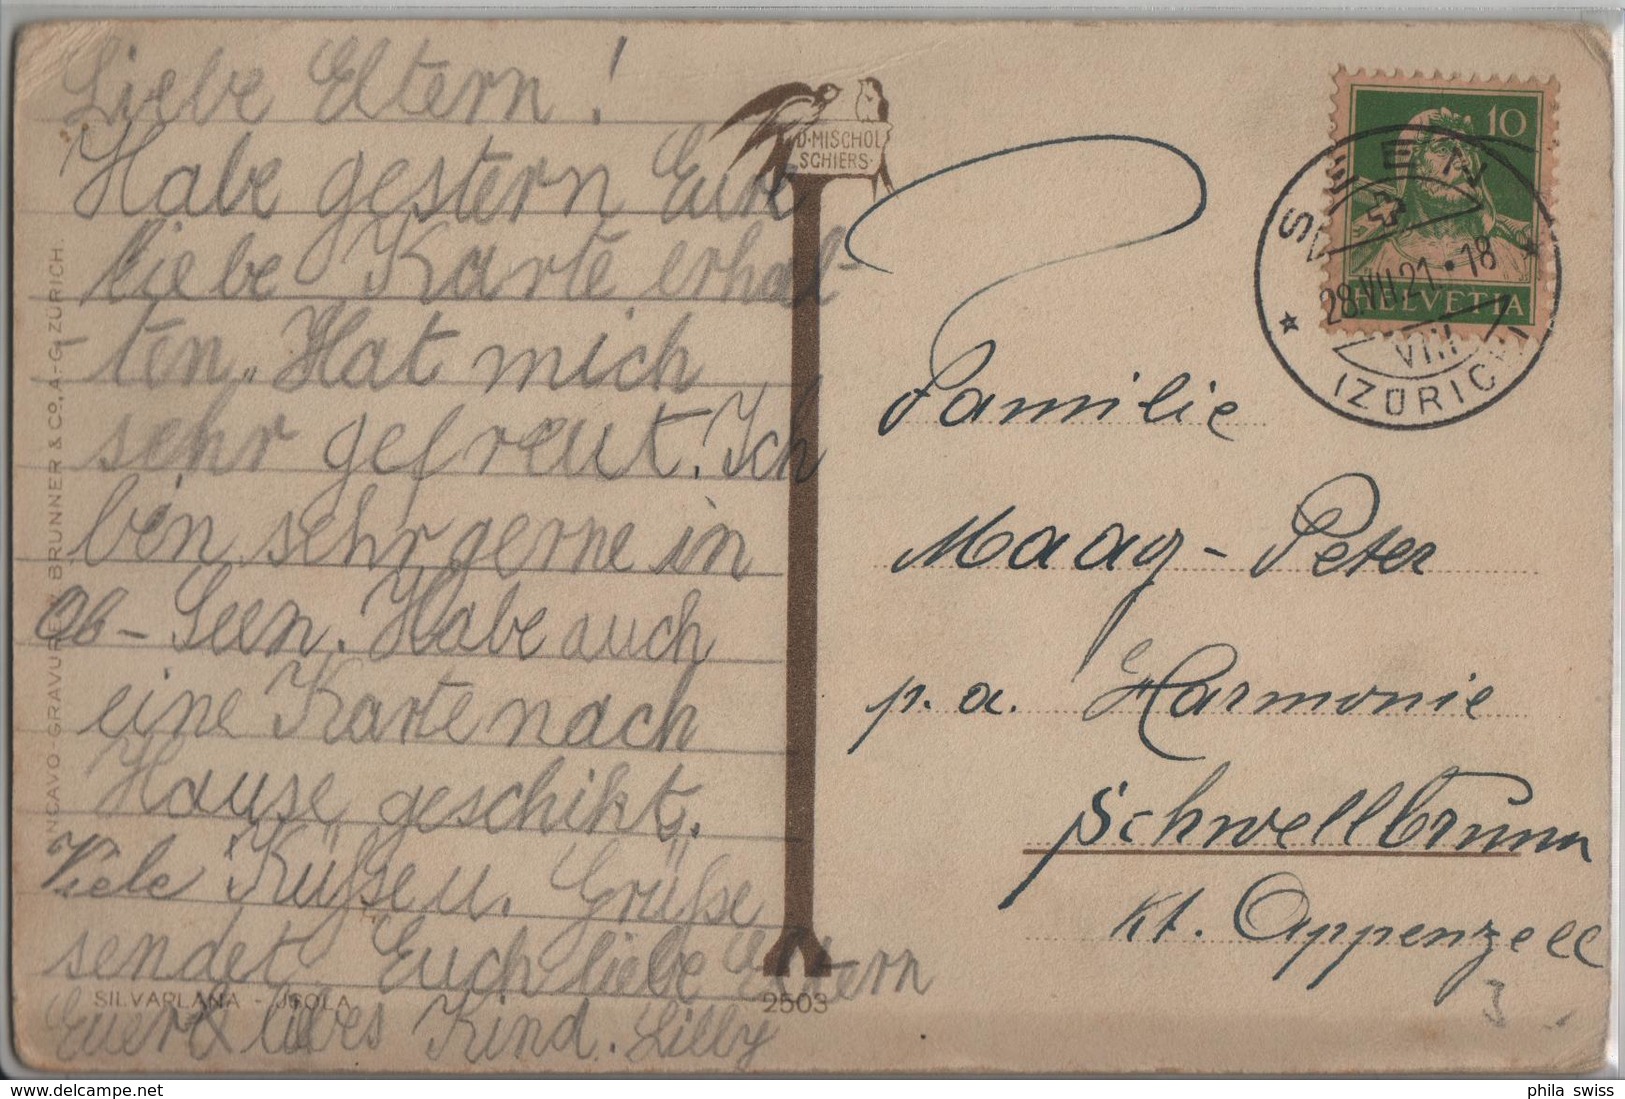 Liebe Eltern!
Habe gestern Eure
liebe Karte erhal-
-ten. Hat mich
sehr gefreut. Ich
bin sehr gerne in
Ob-Seen. Habe auch
eine Karte nach
Hause geschikt.
Viele Küße u. Grüße
sendet Euch liebe Eltern
Euer liebes Kind. Lilly
SILVAPLANA - JSOLA
2503
INCAVO-GRAVURE V. BRUNNER & CO, A-G, ZÜRICH.
D. MISCHOL
SCHIERS.
10
HELVETIA
SEEN
28.VII.21.18
VIII
(ZÜRICH)
Familie
Maag-Peter
p. a. Harmonie
Schwellbrunn
Kt. Appenzell
3
phila swiss